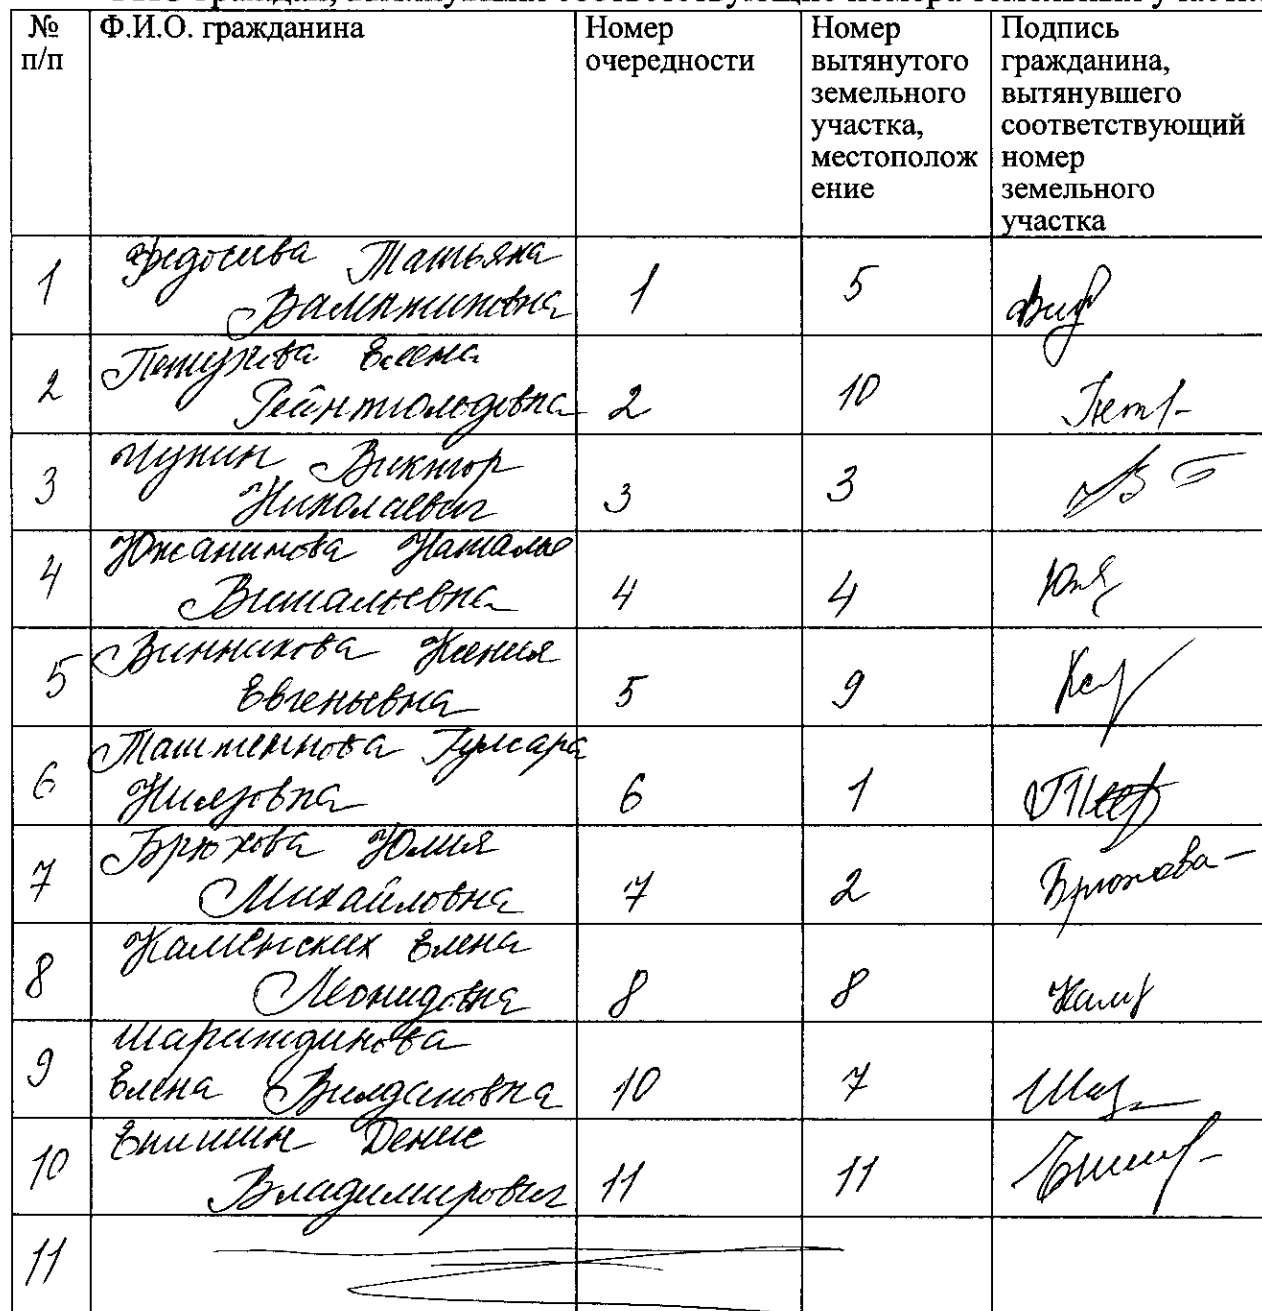 № п/п
Ф.И.О. гражданина
Номер очередности
Номер вытянутого земельного участка, местополож ение
Подпись гражданина, вытянувшего соответствующий номер земельного участка
1
Федосеева Татьяна
Валентиновна
1
5
2
Петухова Елена
Рейнгольдовна
2
10
3
Чунин Виктор
Николаевич
3
3
4
Южанинова Наталья
Витальевна
4
4
5
Винникова Ксения
Евгеньевна
5
9
6
Гулсара
6
1
7
Брюхова Юлия
Михайловна
7
2
Брюхова
8
Каменских Елена
Леонидовна
8
8
9
Шаритдинова
Елена Вилдановна
10
7
10
Епишин Денис
Владимирович
11
11
11